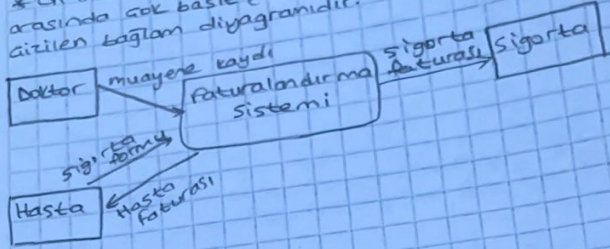 arasında çok basit
çizilen bağlam diyagramıdır.
Doktor
muayene kaydı
faturalandırma
sistemi
sigorta
faturası
Sigorta
sigorta
formu
Hasta
Hasta
faturası